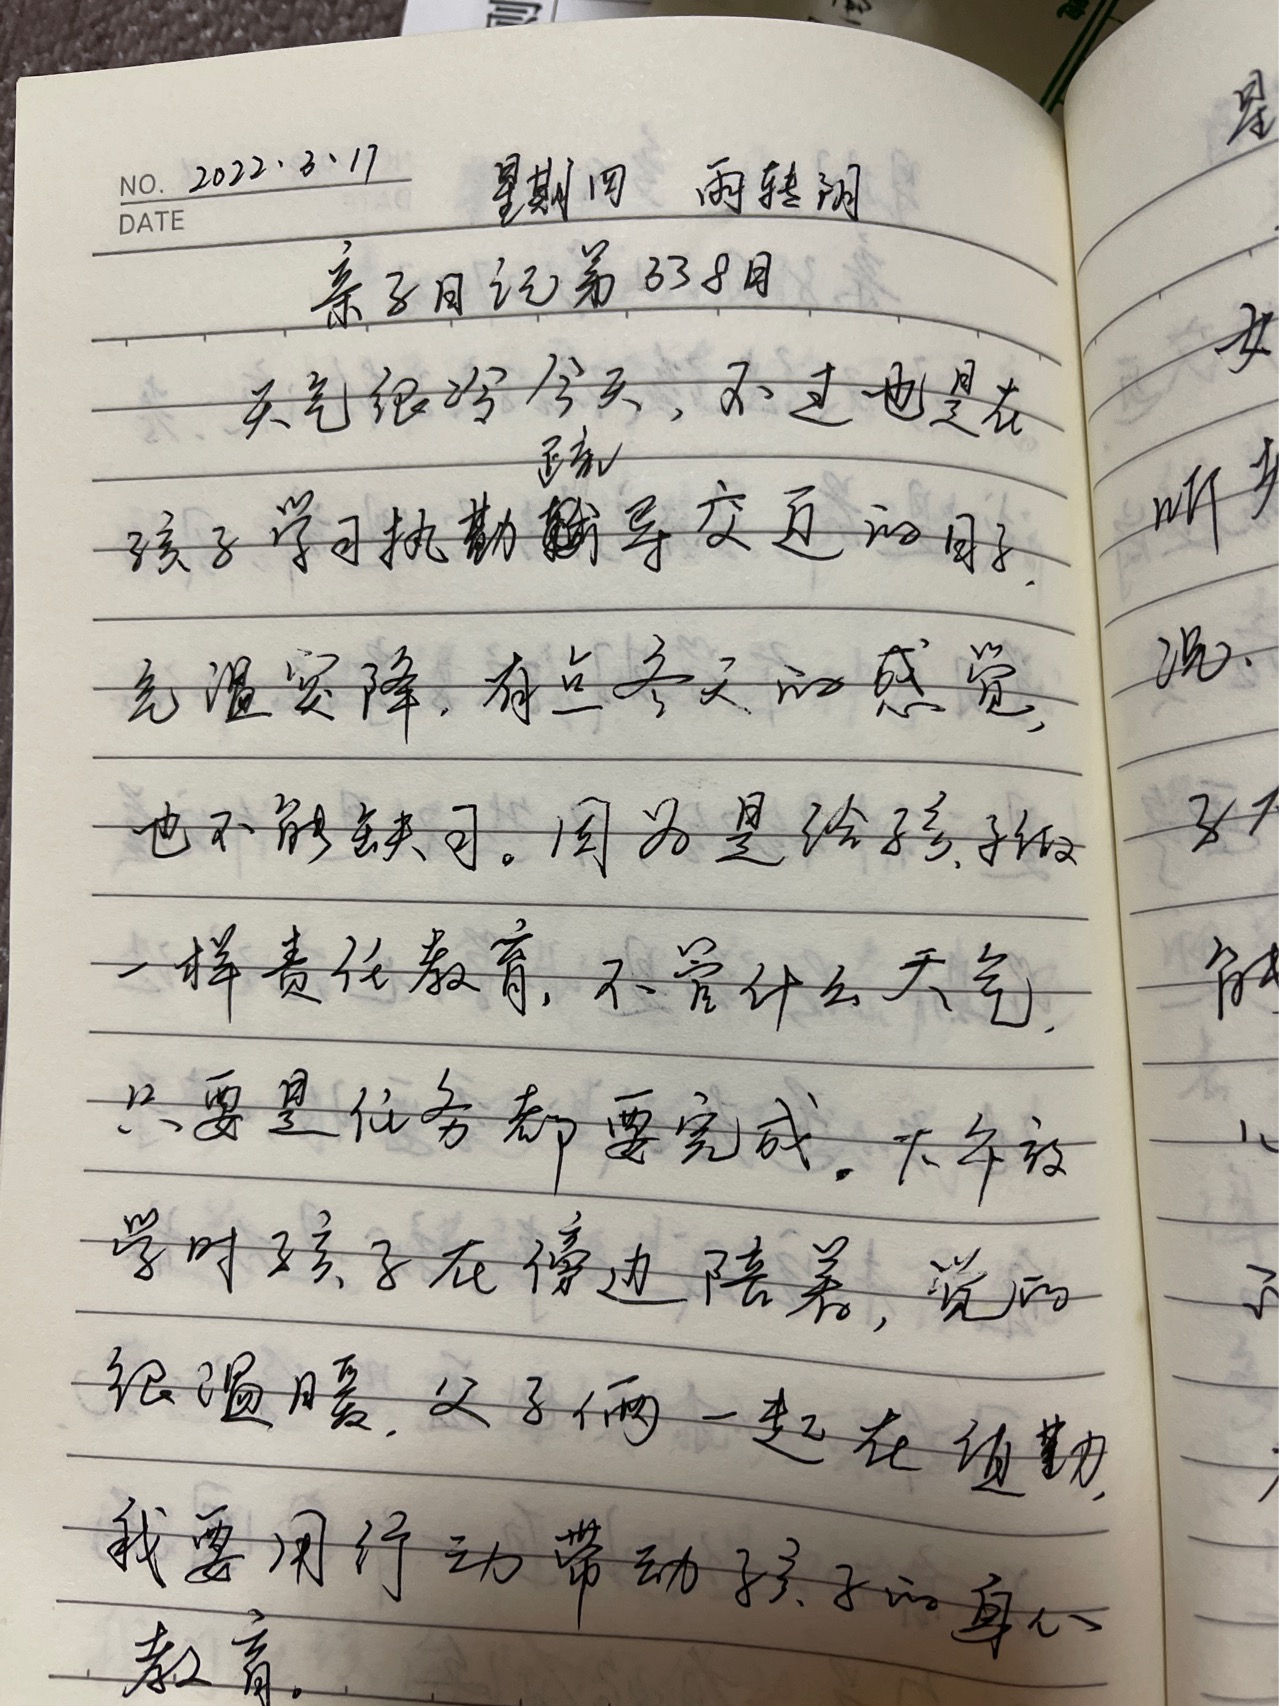 NO. 2022.3.17
DATE
星期四 雨转阴
亲子日记第338日
天气很冷今天，不过也是在
疏
孩子学习执勤导交通的日子，
气温突降，有点冬天的感觉，
也不能缺习。因为是给孩子做
一样责任教育，不管什么天气，
只要是任务都要完成。下午放
学时孩子在傍边陪着，觉的
很温暖，父子俩一起在值勤，
我要用行动带动孩子的身心
教育。